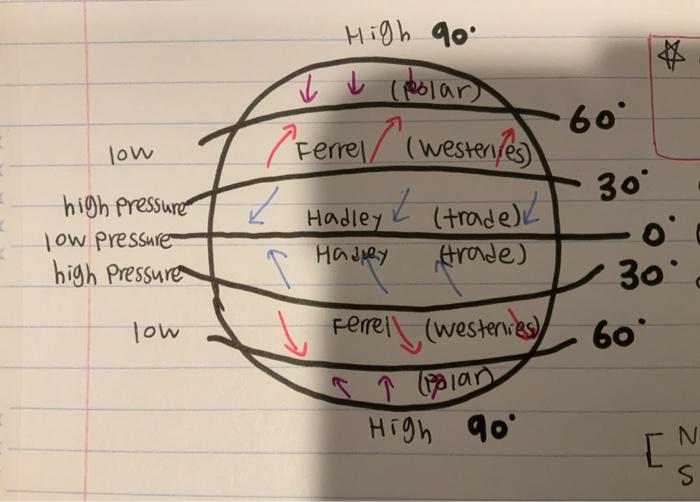 High 90°
(polar)
60°
low
Ferrel (westerlies)
30°
high pressure
Hadley (trade)
low pressure
0°
Hadley (trade)
high pressure
30°
low
Ferrel (westerlies)
60°
(polar)
High 90°
[ N
S